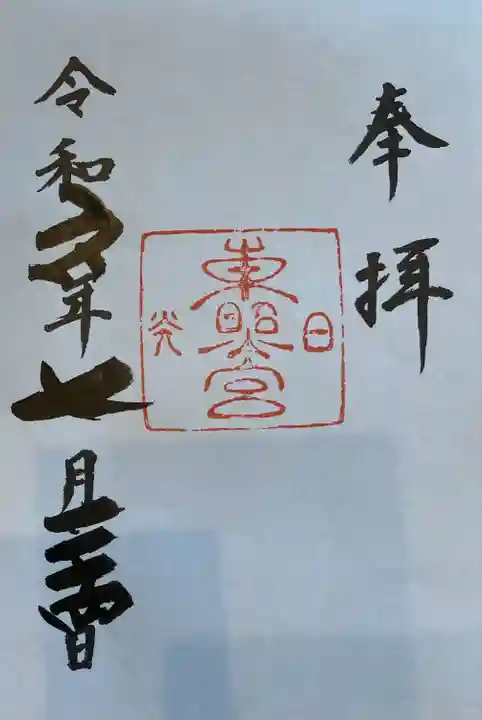 奉拝
日光
東照宮
令和年七月二十四日